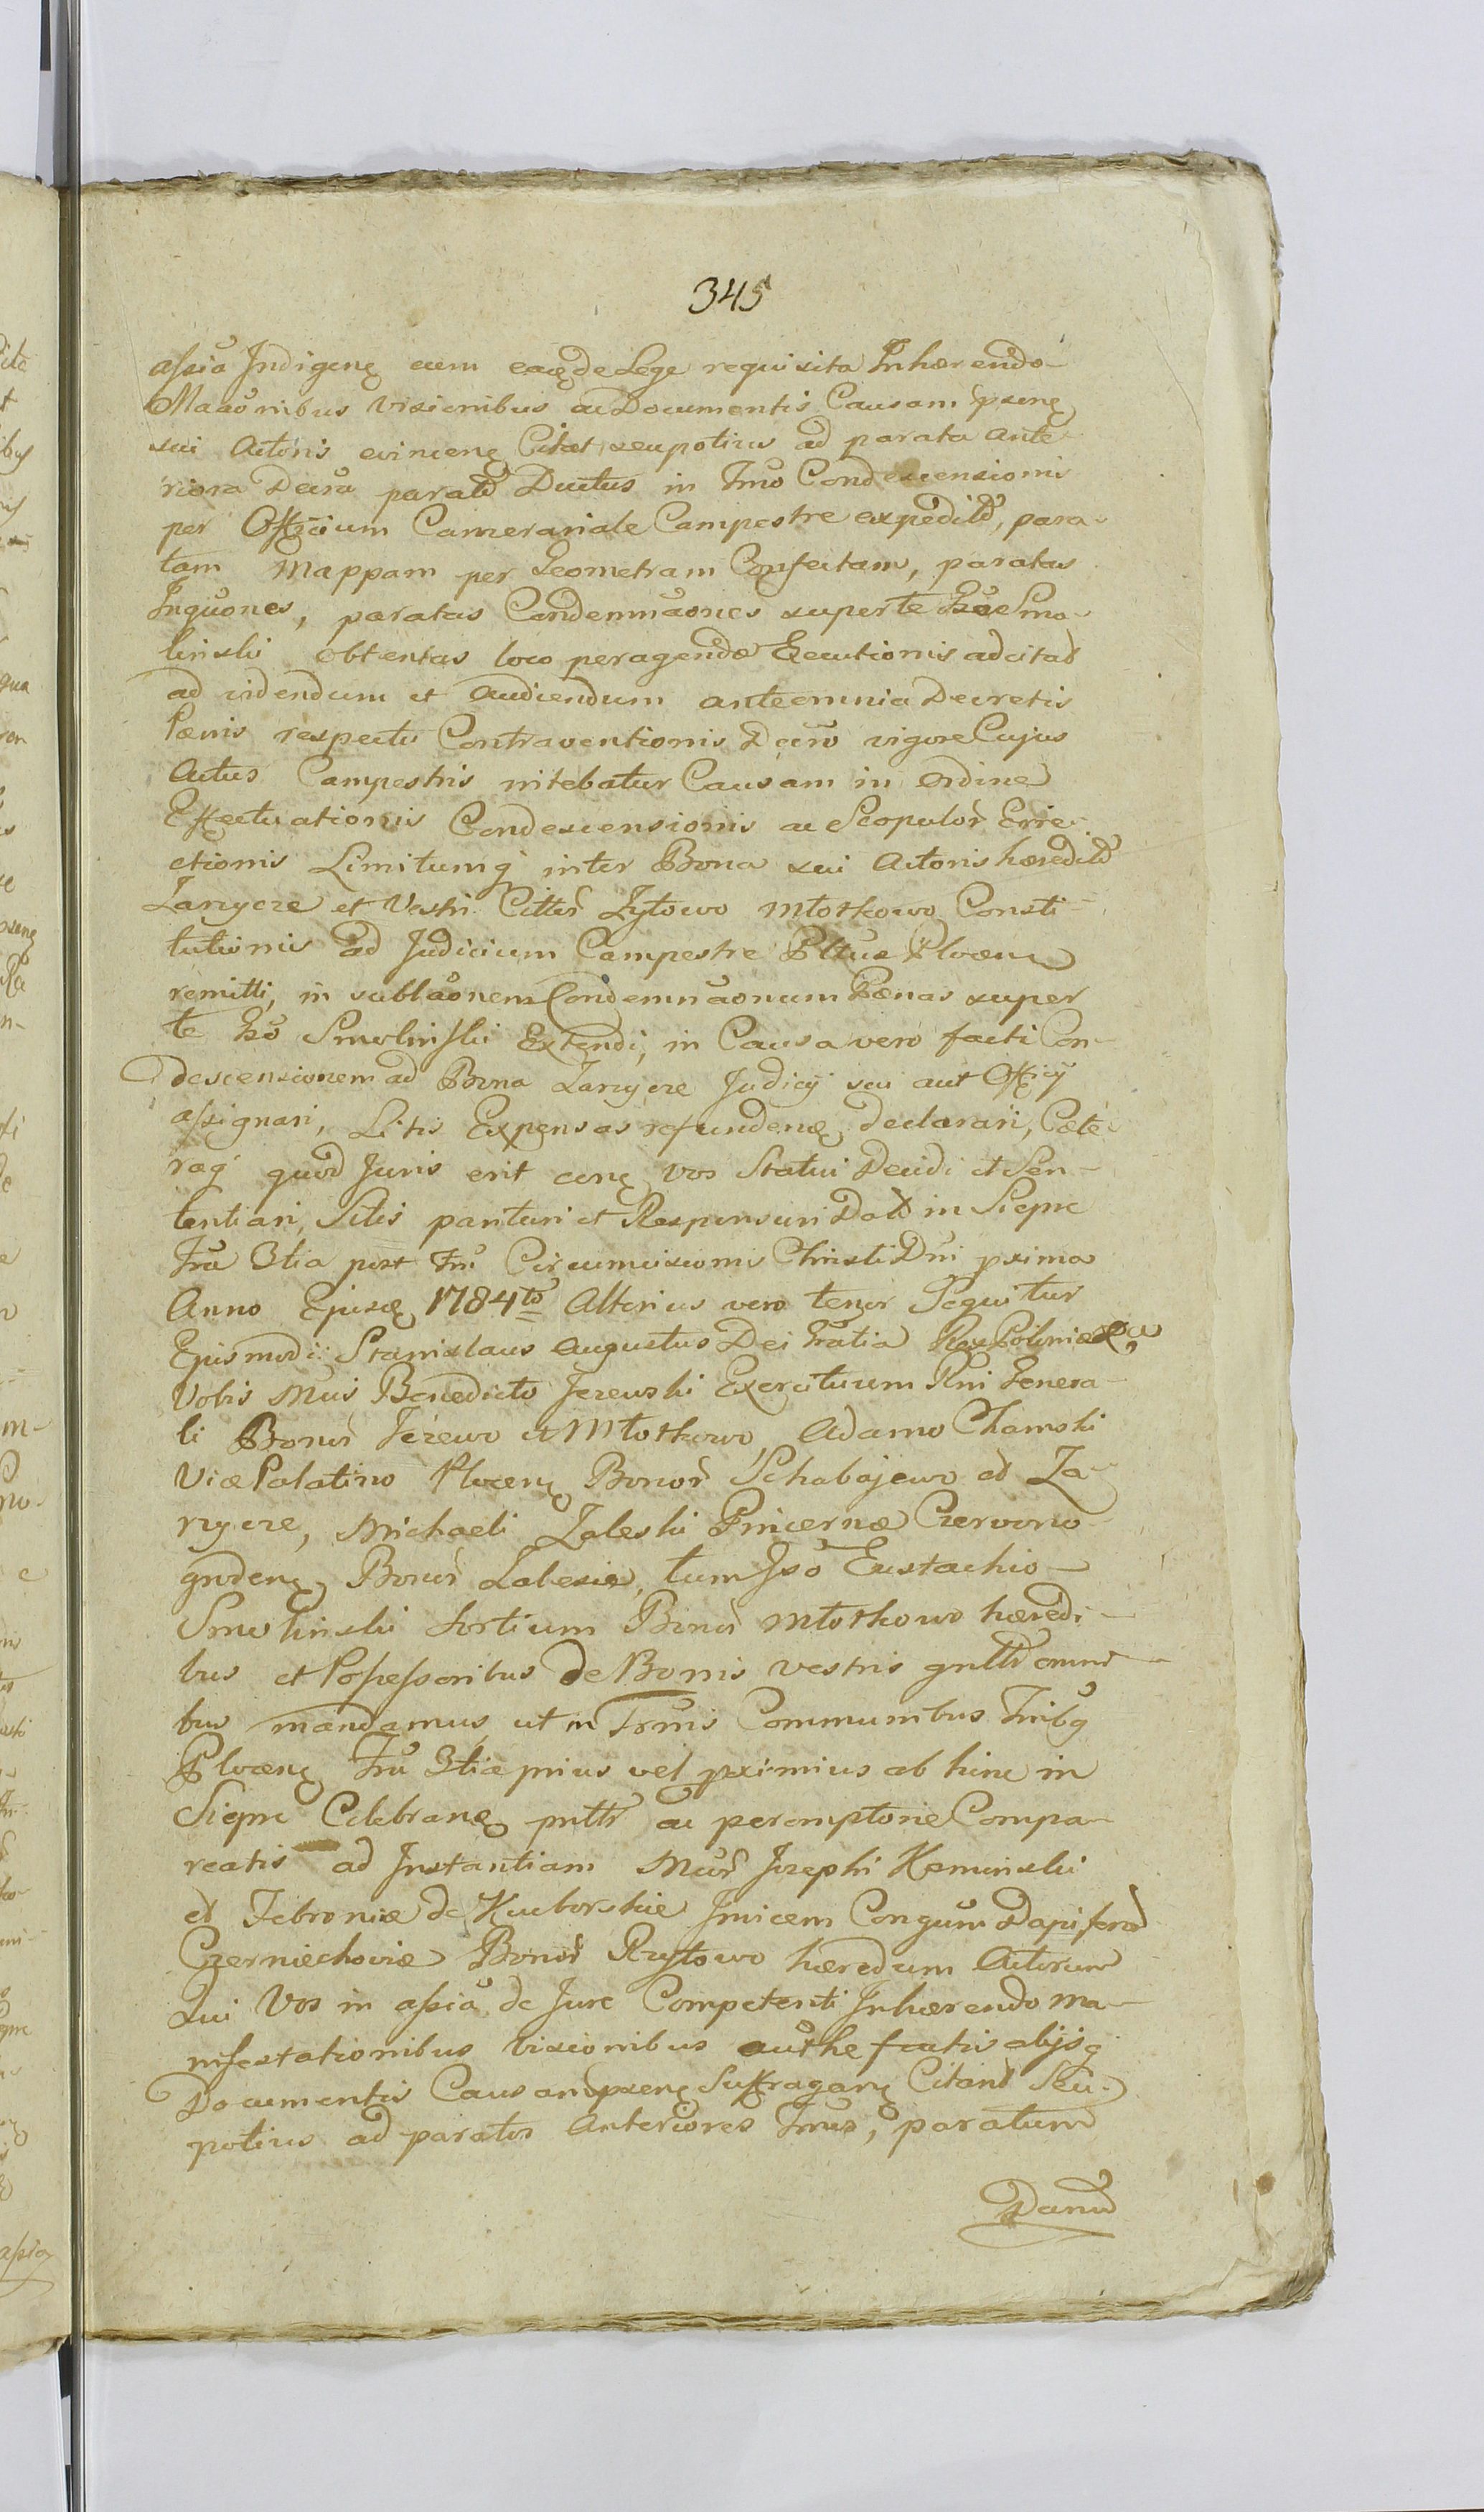 345
assia Indigenę eum eauędeLege requisita Inhærendo
Maãonibus Visionibus ac Documentis Causam pxenę
sui Actoris evincenę Citat seupotius ad parata Ante
riora Decra paratũ Ductus in Tmo Condescensionis
per Officium Camerariale Campestre expeditũ, para
tam Mappam per Geometram Confectam, paratas
Inquones, paratas Condemnaones super te Smo
linski obtentas loco peragendæ Executionis adcitad
ad videndum et Audiendum anteomnia Decretis
Pænis respectu Contraventionis Decro vigore Cujus
Actus Campestris nitebatur Causam in Ordine
Effectuationis Condescensionis ac Scopulor Erre
ctionis Limitumq inter Bona sui Actoris hæredit
Zarzycze et Vestri Citter Zytowo Młotkowo Consti
tutionis ad Judicium Campestre Pltus Plocen
remitti, in sublaonem Condemnaonum Pænas super
te Gso Smolinski Extendi, in Causa vero facti Con
descensionem ad Bona Zarzycze Judicij sui aut Officij
assignari, Litis Expensas refundenę, declarari, Cæte
raq quod Juris erit cenę vos Statui Decidi et Sen
tentiari, Sitis parituri et Responsuri Dat in Sieprc
Fra 3tia post Fm Circumcisionis Christi Dni pxima
Anno Ejusdę 1784to Alterius vero tenor Sequitur
Ejusmodi: Stanislaus Augustus Dei Gratia Rex Poloniæ &c
Vobis Mcis Benedicto Jezewski Exercituum Rni Genera
li Bonor Jeżewo et Młotkowo, Adamo Chamski
ViæPalatino Plocenę Bonor Schabajewo ad Za
rzycze, Michaeli Zaleski Pincernæ Czerwono
grodenę Bonor Zalesie, tum Gso Eustachio
Smolinski Sortium Bonor Młotkowo hæredi
bus et Possessoribus de Bonis vestris gnltr omni
bus mandamus, ut in Trmis Communibus Trribq
Plocenę Fra 3tia prius vel pximius ab hinc in
Sieprc Celebranę pnltr ac peremptorie Compa
reatis ad Instantiam Mcor Josephi Kaminski
et Febroniæ de Kuborskie Invicem Congum Dapiferod
Czerniechoviæ Bonor Rzytowo hæredum Actorum
Qui Vos in assia de Jure Competenti Inhærendo Ma
nifestationibus Visionibus authe factis alijsq
Documentis Causam pxenę Suffraganę Citand Seu
potius ad paratos Anteriores Tmos, paratum
Danũ